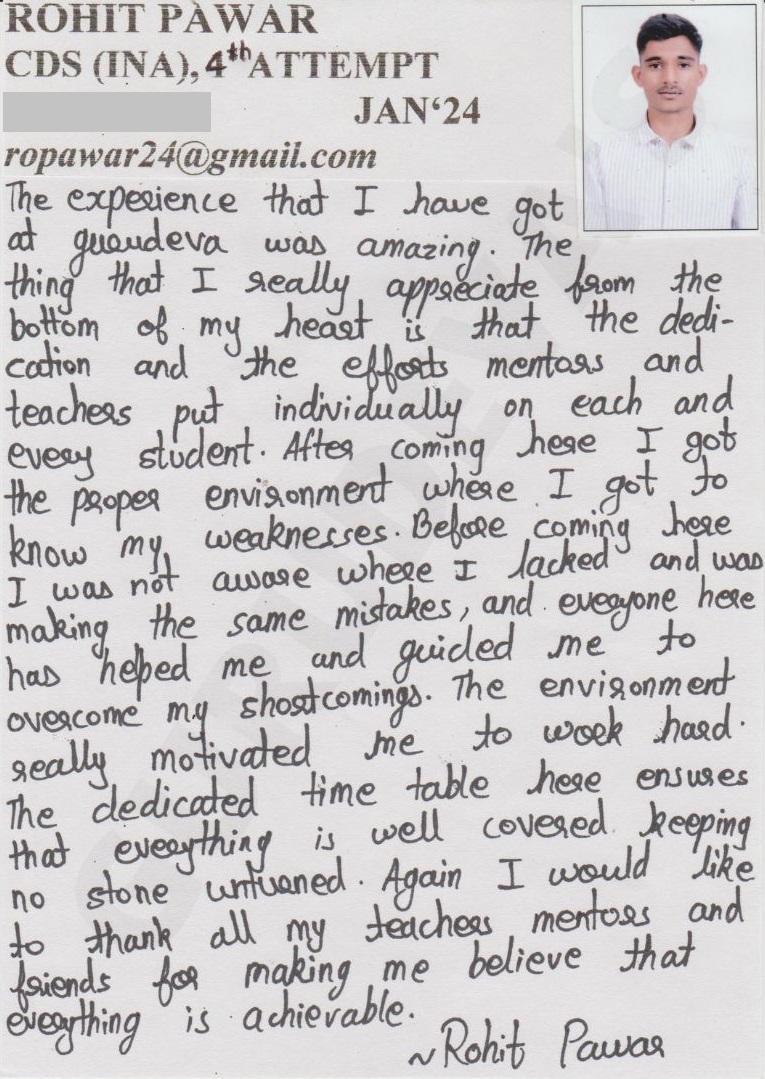 ROHIT PAWAR
CDS (INA), 4th ATTEMPT
JAN‘24
ropawar24@gmail.com
The experience that I have got
at gurudeva was amazing. The
thing that I really appreciate from the
bottom of my heart is that the dedi-
cation and the efforts mentors and
teachers put individually on each and
every student. After coming here I got
the proper environment where I got to
know my weaknesses. Before coming here
I was not aware where I lacked and was
making the same mistakes, and everyone here
has helped me and guided me to
overcome my shortcomings. The environment
really motivated me to work hard.
The dedicated time table here ensures
that everything is well covered keeping
no stone unturned. Again I would like
to thank all my teachers mentors and
friends for making me believe that
everything is achievable.
~Rohit Pawar